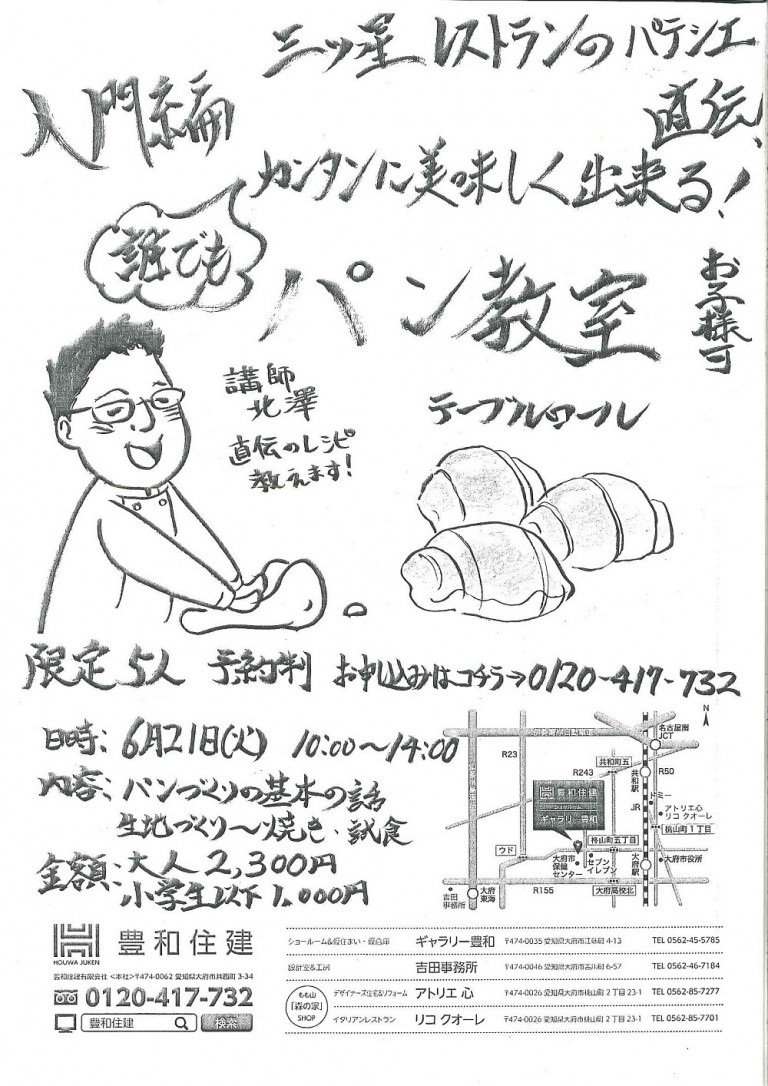 三ッ星レストランのパテシエ
直伝!
入門編
カンタンに美味しく出来る!
誰でも
パン教室
お子様可
講師
北澤
直伝のレシピ
教えます!
テーブルロール
限定5人 予約制 お申し込みはコチラ→0120-417-732
日時:6月21日(火) 10:00~14:00
内容:パンづくりの基本の話
生地づくり~焼き・試食
金額:大人2,300円
小学生以下1,000円
N
名古屋南
JCT
R23
R243
共和町五
共和駅
R50
豊和住建
ギャラリー豊和
ドミー
JR
アトリエ心
リコ クオーレ
桃山町1丁目
柊山町五丁目
ウド
大府市
保健
センター
セブン
イレブン
大府駅
大府市役所
吉田
事務所
大府
東海
R155
大府高校北
HOUWA JUKEN
豊和住建
豊和住建有限会社 <本社>〒474-0062 愛知県大府市共西町3-34
0120-417-732
豊和住建 検索
ショールーム&仮住まい・仮倉庫 ギャラリー豊和 〒474-0035 愛知県大府市江端町4-13 TEL 0562-45-5785
設計室&工房 吉田事務所 〒474-0046 愛知県大府市吉川町6-57 TEL 0562-46-7184
もも山
「森の家」
SHOP
デザイナーズ住宅&リフォーム アトリエ 心 〒474-0026 愛知県大府市桃山町2丁目23-1 TEL 0562-85-7277
イタリアンレストラン リコ クオーレ 〒474-0026 愛知県大府市桃山町2丁目23-1 TEL 0562-85-7701